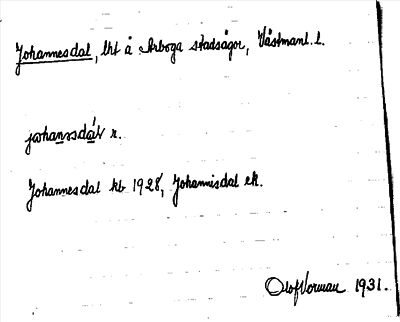 Johannesdal, lht å Arboga stadsägor, Västmanl. l.
johanssdá͟l r.
Johannesdal kb 1928, Johannisdal ek.
Olof Vorman 1931.